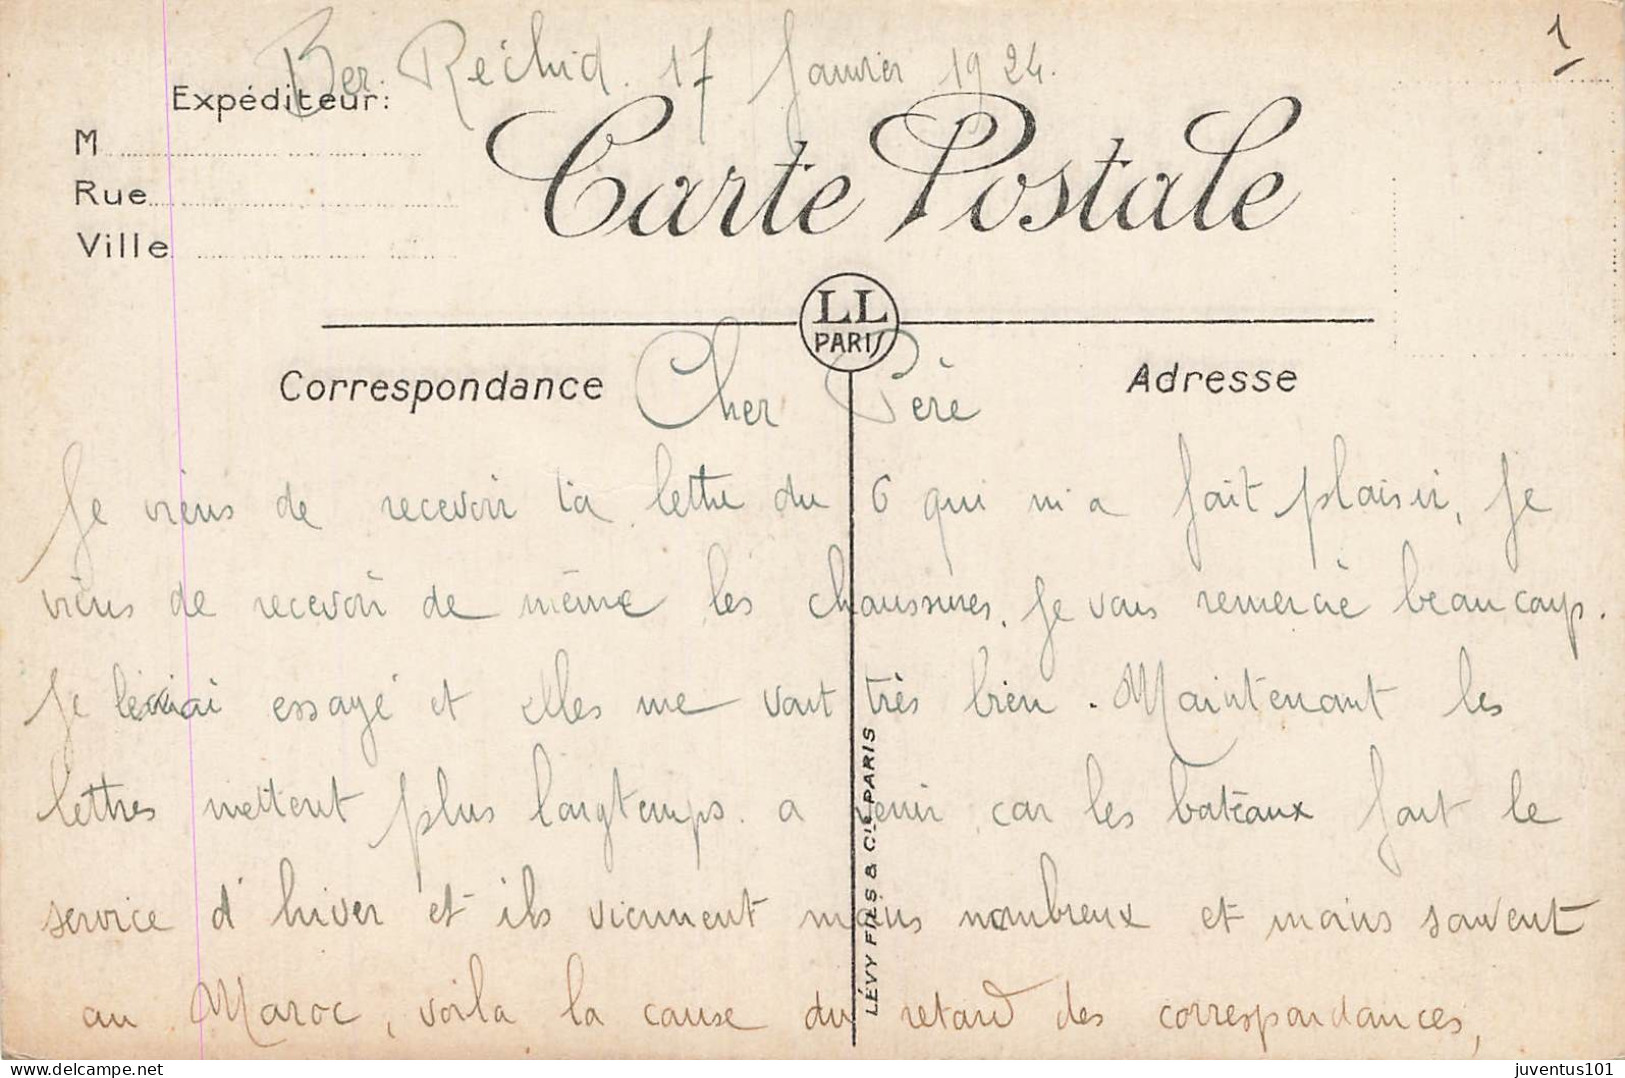 1
Ber Rechid. 17 Janvier 1924.
Expéditeur:
M
Rue
Ville
Carte Postale
LL
PARIS
Correspondance
Adresse
Cher Père
Je viens de recevoir ta lettre du 6 qui m'a fait plaisir, je
viens de recevoir de même les chaussures. Je vous remercie beaucoup.
Je essayé et elles me vont très bien. Maintenant les
lettres mettent plus longtemps a venir car les bateaux font le
service d'hiver et ils viennent moins nombreux et moins souvent
au Maroc, voila la cause du retard des correspondances,
LÉVY FILS & Cie PARIS
delcampe.net
juventus101